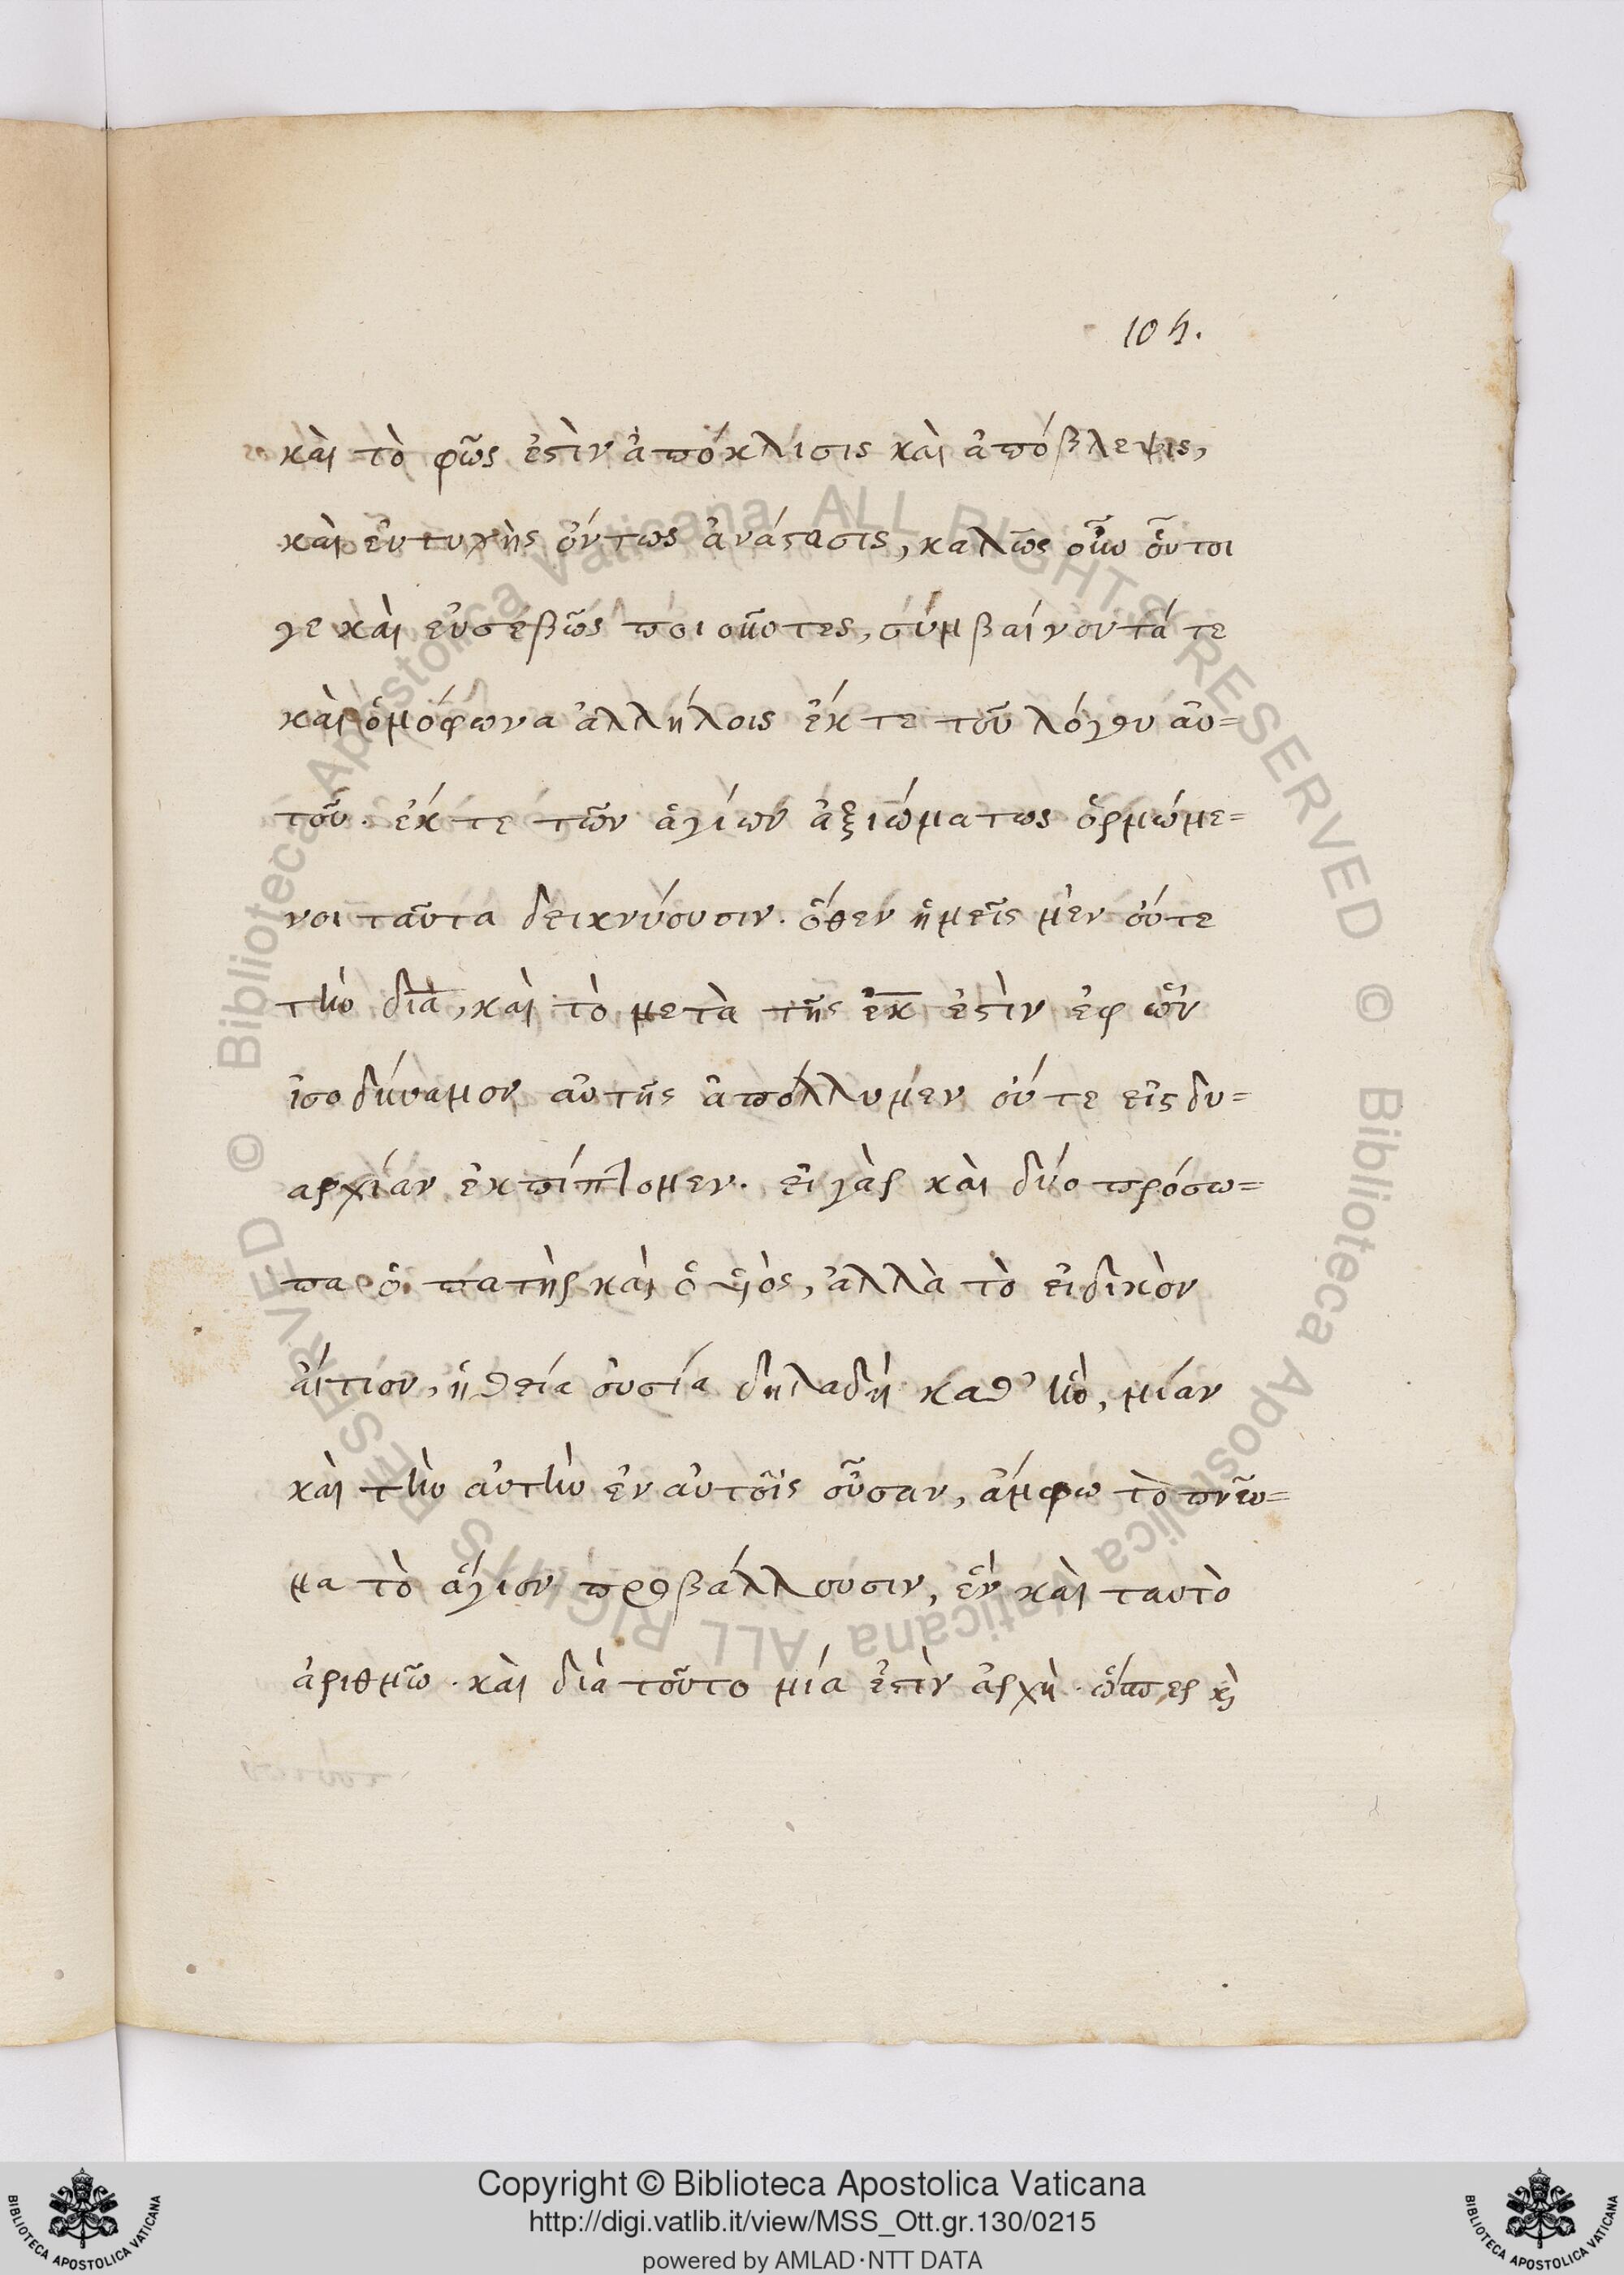 104.
καὶ τὸ φῶς ἐστὶν ἀπόκλισις καὶ ἀπόβλεψις,
καὶ εὐτυχὴς ὄντως ἀνάστασις, καλῶς οὖν οὗτοι
γε καὶ εὐσεβῶς ποιοῦντες, συμβαίνοντά τε
καὶ ὁμόφωνα ἀλλήλοις ἔκ τε τοῦ λόγου αὐ=
τοῦ. ἔκ τε τῶν ἁγίων ἀξιώματος ὁρμώμε=
νοι ταῦτα δεικνύουσιν. ὅθεν ἡμεῖς μὲν οὔτε
τὴν διὰ, καὶ τὸ μετὰ τῆς ἐκ ἐστὶν ἐφ ὧν
ἰσοδύναμον αὐτῆς ἀπόλλυμεν οὔτε εἰς δυ=
αρχίαν ἐκπίπτομεν. εἰ γὰρ καὶ δύο πρόσω=
πα ὁ πατὴρ καὶ ὁ υἱὸς, ἀλλὰ τὸ εἰδικὸν
αἴτιον, ἡ θεία οὐσία δηλαδὴ καθ' ἣν, μίαν
καὶ τὴν αὐτὴν ἐν αὐτοῖς οὖσαν, ἄμφω τὸ πνεῦ=
μα τὸ ἅγιον προβάλλουσιν, ἓν καὶ ταυτὸ
ἀριθμῶ. καὶ διὰ τοῦτο μία ἐστὶν ἀρχὴ. ὥσπερ κὶ
© Biblioteca Apostolica Vaticana ALL RIGHTS RESERVED © Biblioteca Apostolica Vaticana ALL RIGHTS RESERVED
BIBLIOTECA APOSTOLICA VATICANA
Copyright © Biblioteca Apostolica Vaticana
http://digi.vatlib.it/view/MSS_Ott.gr.130/0215
powered by AMLAD·NTT DATA
BIBLIOTECA APOSTOLICA VATICANA